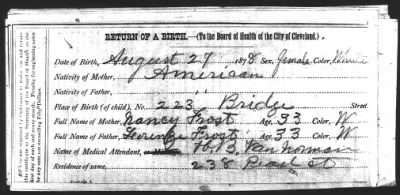 RETURN OF A BIRTH.—(To the Board of Health of the City of Cleveland.)
Date of Birth, August 27 189 Sex, female Color, White
Nativity of Mother, American
Nativity of Father, " "
Place of Birth (of child), No. 223 Bridge Street
Full Name of Mother, Nancy Frost Age, 33 Color, W
Full Name of Father, Frost Age, 33 Color, W
Name of Medical Attendant, H. B. Van Norman
Residence of same, 238 Pearl St